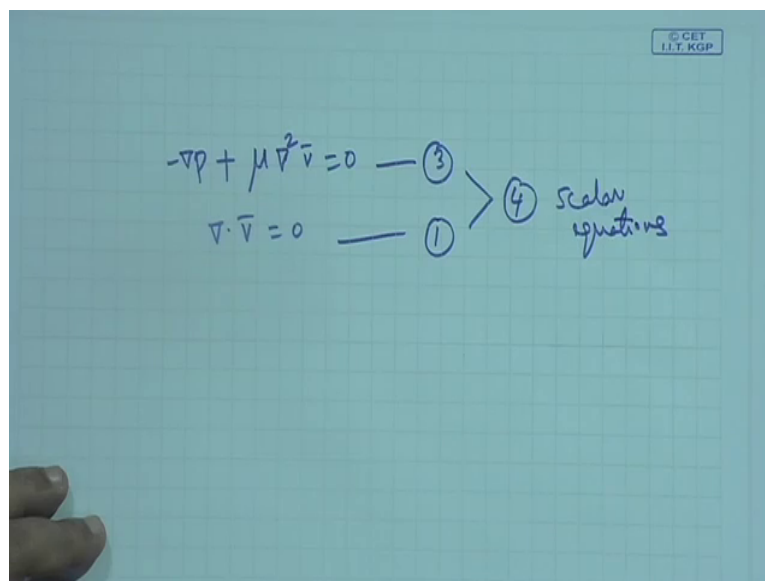 © CET
I.I.T. KGP
-∇p + μ∇²v̄ = 0 — ③
∇·v̄ = 0 — ①
> ④ scalar
equations